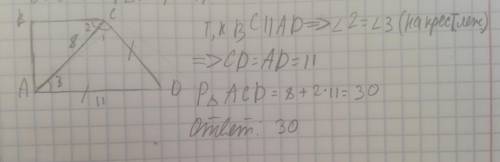 B
C
2
1
8
3
A
11
D
Т,к BC||AD=>∠2=∠3 (накрест леж)
=>CD=AD=11
P△ACD=8+2·11=30
Ответ: 30